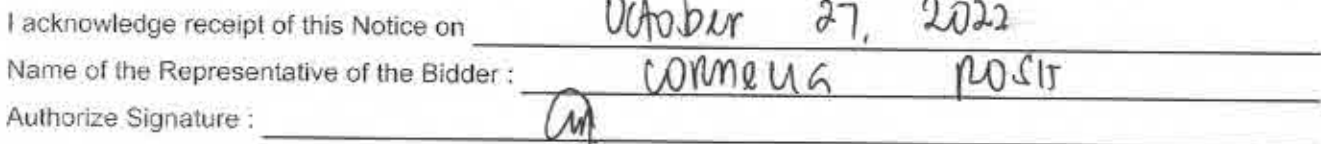 I acknowledge receipt of this Notice on October 27, 2022
Name of the Representative of the Bidder : CORNELIA
Authorize Signature :